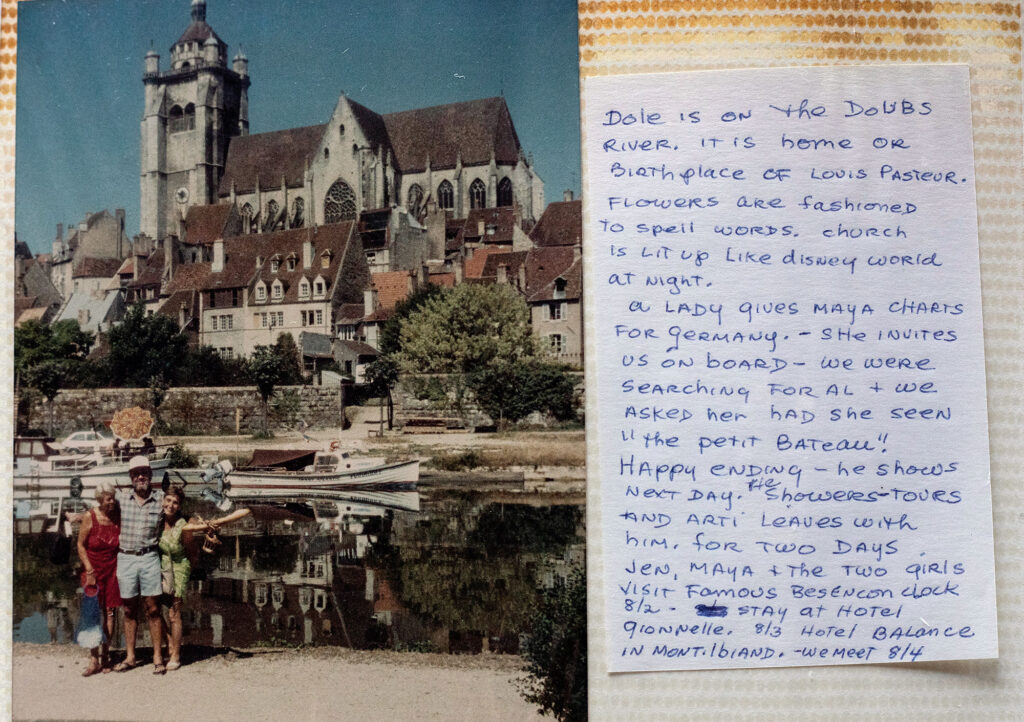 Dole is on the Doubs
River. It is home or
Birthplace of Louis Pasteur.
Flowers are fashioned
to spell words. Church
is lit up like disney world
at night.
a lady gives Maya charts
for Germany. - She invites
us on board - we were
searching for Al + we
asked her had she seen
"the petit Bateau"!
Happy ending - he shows
next day. He showers - tours
and Arti leaves with
him. for two days.
Jen, Maya + the two girls
visit famous Besencon clock
8/2 - stay at Hotel
Gionnelle. 8/3 Hotel Balance
in Montilbiand. - we meet 8/4